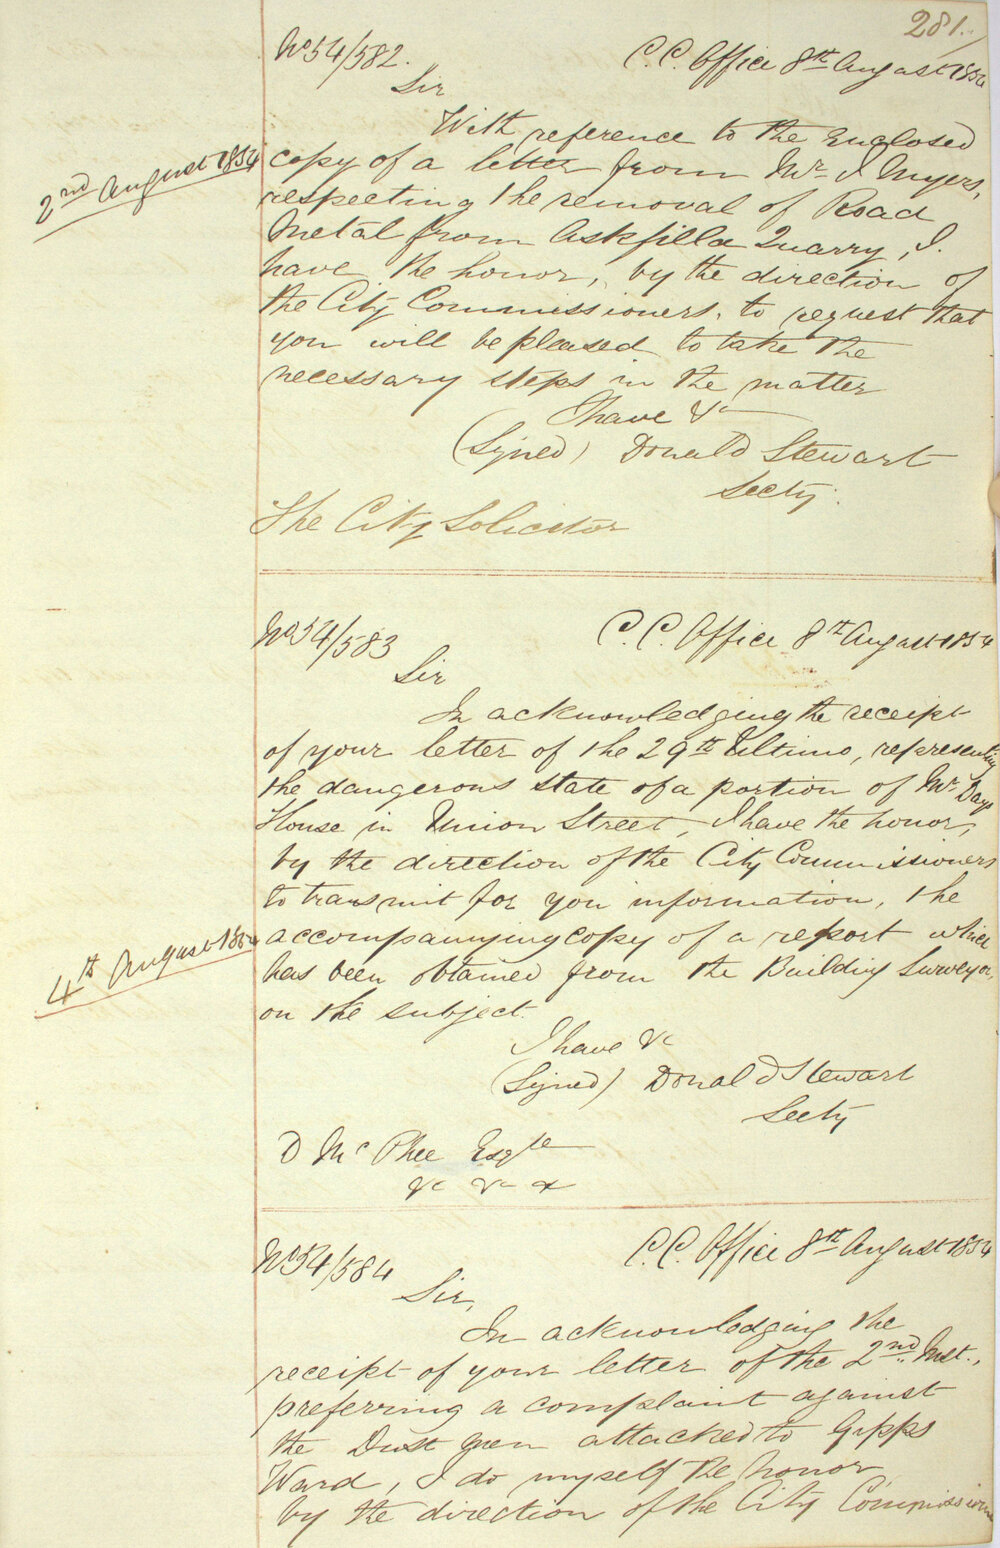 281.
No 54/582.
C.C. Office 8th August 1854
Sir
With reference to the Enclosed
2nd August 1854
copy of a letter from Mr. I Myers,
respecting the removal of Road
Metal from Askfilla Quarry, I.
have the honor, by the direction of
the City Commissioners, to request that
you will be pleased to take the
necessary steps in the matter
I have &c
(Signed) Donald Stewart
Secty.
The City Solicitor
No 54/583
C.C. Office 8th August 1854
Sir
In acknowledging the receipt
of your letter of the 29th Ultimo, representing
the dangerous state of a portion of Mr Days
House in Union Street, I have the honor,
by the direction of the City Commissioners
to transmit for you information, the
4th August 1854
accompanying copy of a report which
has been obtained from the Building Surveyor,
on the subject.
I have &c
(Signed) Donald Stewart
Secty
D McPhee Esqre
&c &c &
No 54/584
C.C. Office 8th August 1854
Sir,
In acknowledging the
receipt of your letter of the 2nd Inst.,
preferring a complaint against
the Dust men attached to Gipps
Ward, I do myself the honor
by the direction of the City Commissioners